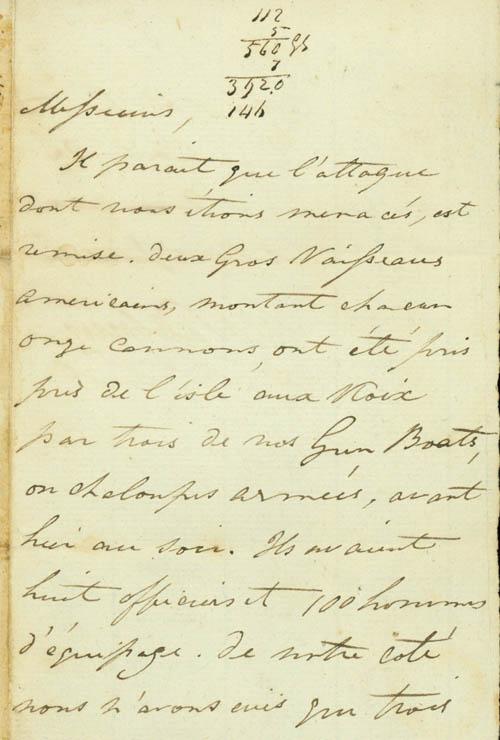 112
5
560 Gs
7
3920
146
Messieurs,
Il parait que l'attaque
dont nous étions menacés, est
remise. deux Gros Vaisseaux
américains, montant chacun
onze cannons, ont été pris
près de l'isle aux Noix
par trois de nos Gun Boats,
ou chaloupes armées, avant
hier au soir. Ils avaient
huit officiers et 100 hommes
d'équipage. de notre coté
nous n'avons eus que trois